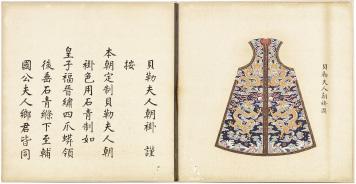 貝勒夫人朝褂　謹
按
本朝定制貝勒夫人朝
褂色用石青制如
皇子福晉繡四爪蟒領
後垂石青縧下至輔
國公夫人鄉君皆同
貝勒夫人朝褂圖